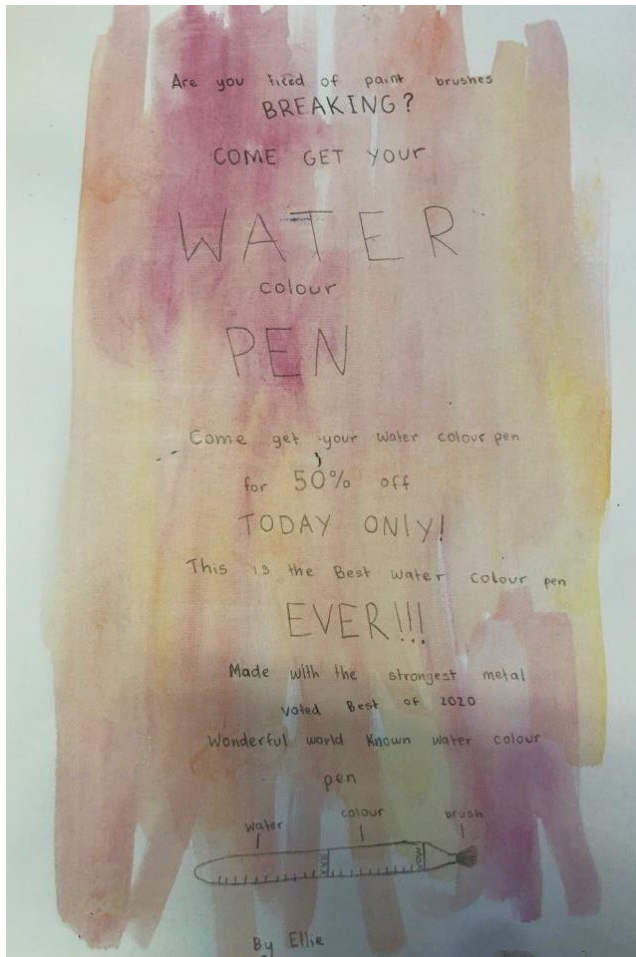 Are you tired of paint brushes
BREAKING?
COME GET YOUR
WATER
colour
PEN
Come get your water colour pen
for 50% off
TODAY ONLY!
This is the Best water colour pen
EVER!!!
Made with the strongest metal
Voted Best of 2020
Wonderful world Known water colour
pen
water colour brush
MAX MAX
By Ellie